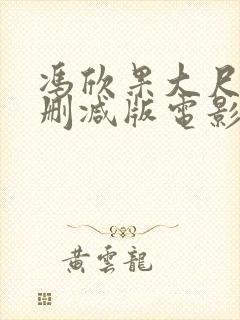 馮欣果大尺
刪減版電影
黃雲龍